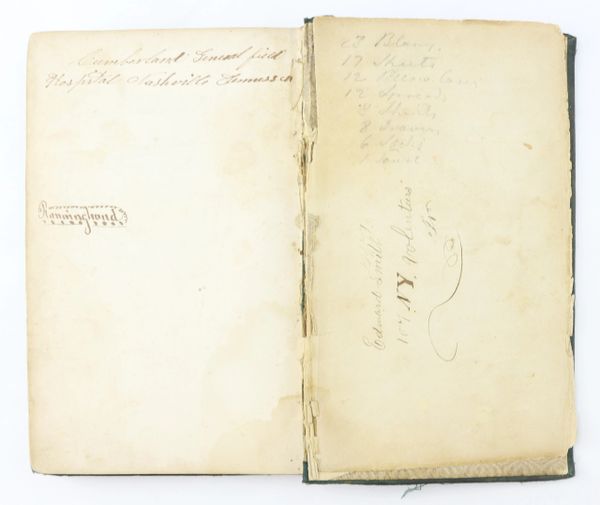 Cumberland General field
Hospital Nashville Tennessee
Running hand
23 Blan
17 Sheets
12 Pillow Cases
12 Spreads
8 Shirts
8 Drawers
6 Socks
1 Towel
Edward Smith
107 N.Y. Volentars